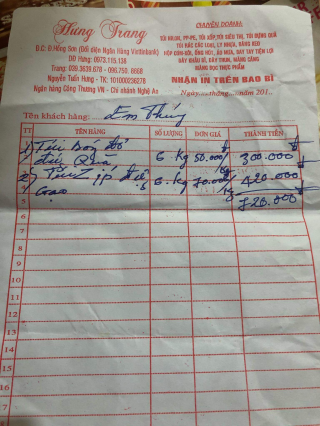 Hưng Trang
Đ/C: Đ.Hồng Sơn (Đối diện Ngân Hàng Viettinbank)
DĐ Hưng: 0973.115.138
Trang: 039.3639.678 - 096.750. 6668
Nguyễn Tuấn Hưng - TK: 101000236278
Ngân hàng Công Thương VN - Chi nhánh Nghệ An
CHUYÊN DOANH
TÚI NILON, PP-PE, TÚI XỐP, TÚI SIÊU THỊ, TÚI ĐỰNG QUÀ
TÚI RÁC CÁC LOẠI, LY NHỰA, BĂNG KEO
HỘP CƠM XÔI, ỐNG HÚT, ÁO MƯA, GĂNG TAY TIỆN LỢI
DÂY KHÂU BÌ, DÂY THUN, MÀNG CĂNG
MÀNG BỌC THỰC PHẨM
NHẬN IN TRÊN BAO BÌ
Ngày......tháng......năm 201..
Tên khách hàng: Em Thúy
TT TÊN HÀNG SỐ LƯỢNG ĐƠN GIÁ THÀNH TIỀN
1) Túi bóng đỏ 6 Kg 50.000đ/kg 300.000đ
đự Quà
2) Túi Zíp đự 6 Kg 70.000đ/kg 420.000đ
gạo
5 720.000đ
6
7
8
9
10
11
12
13
14
15
16